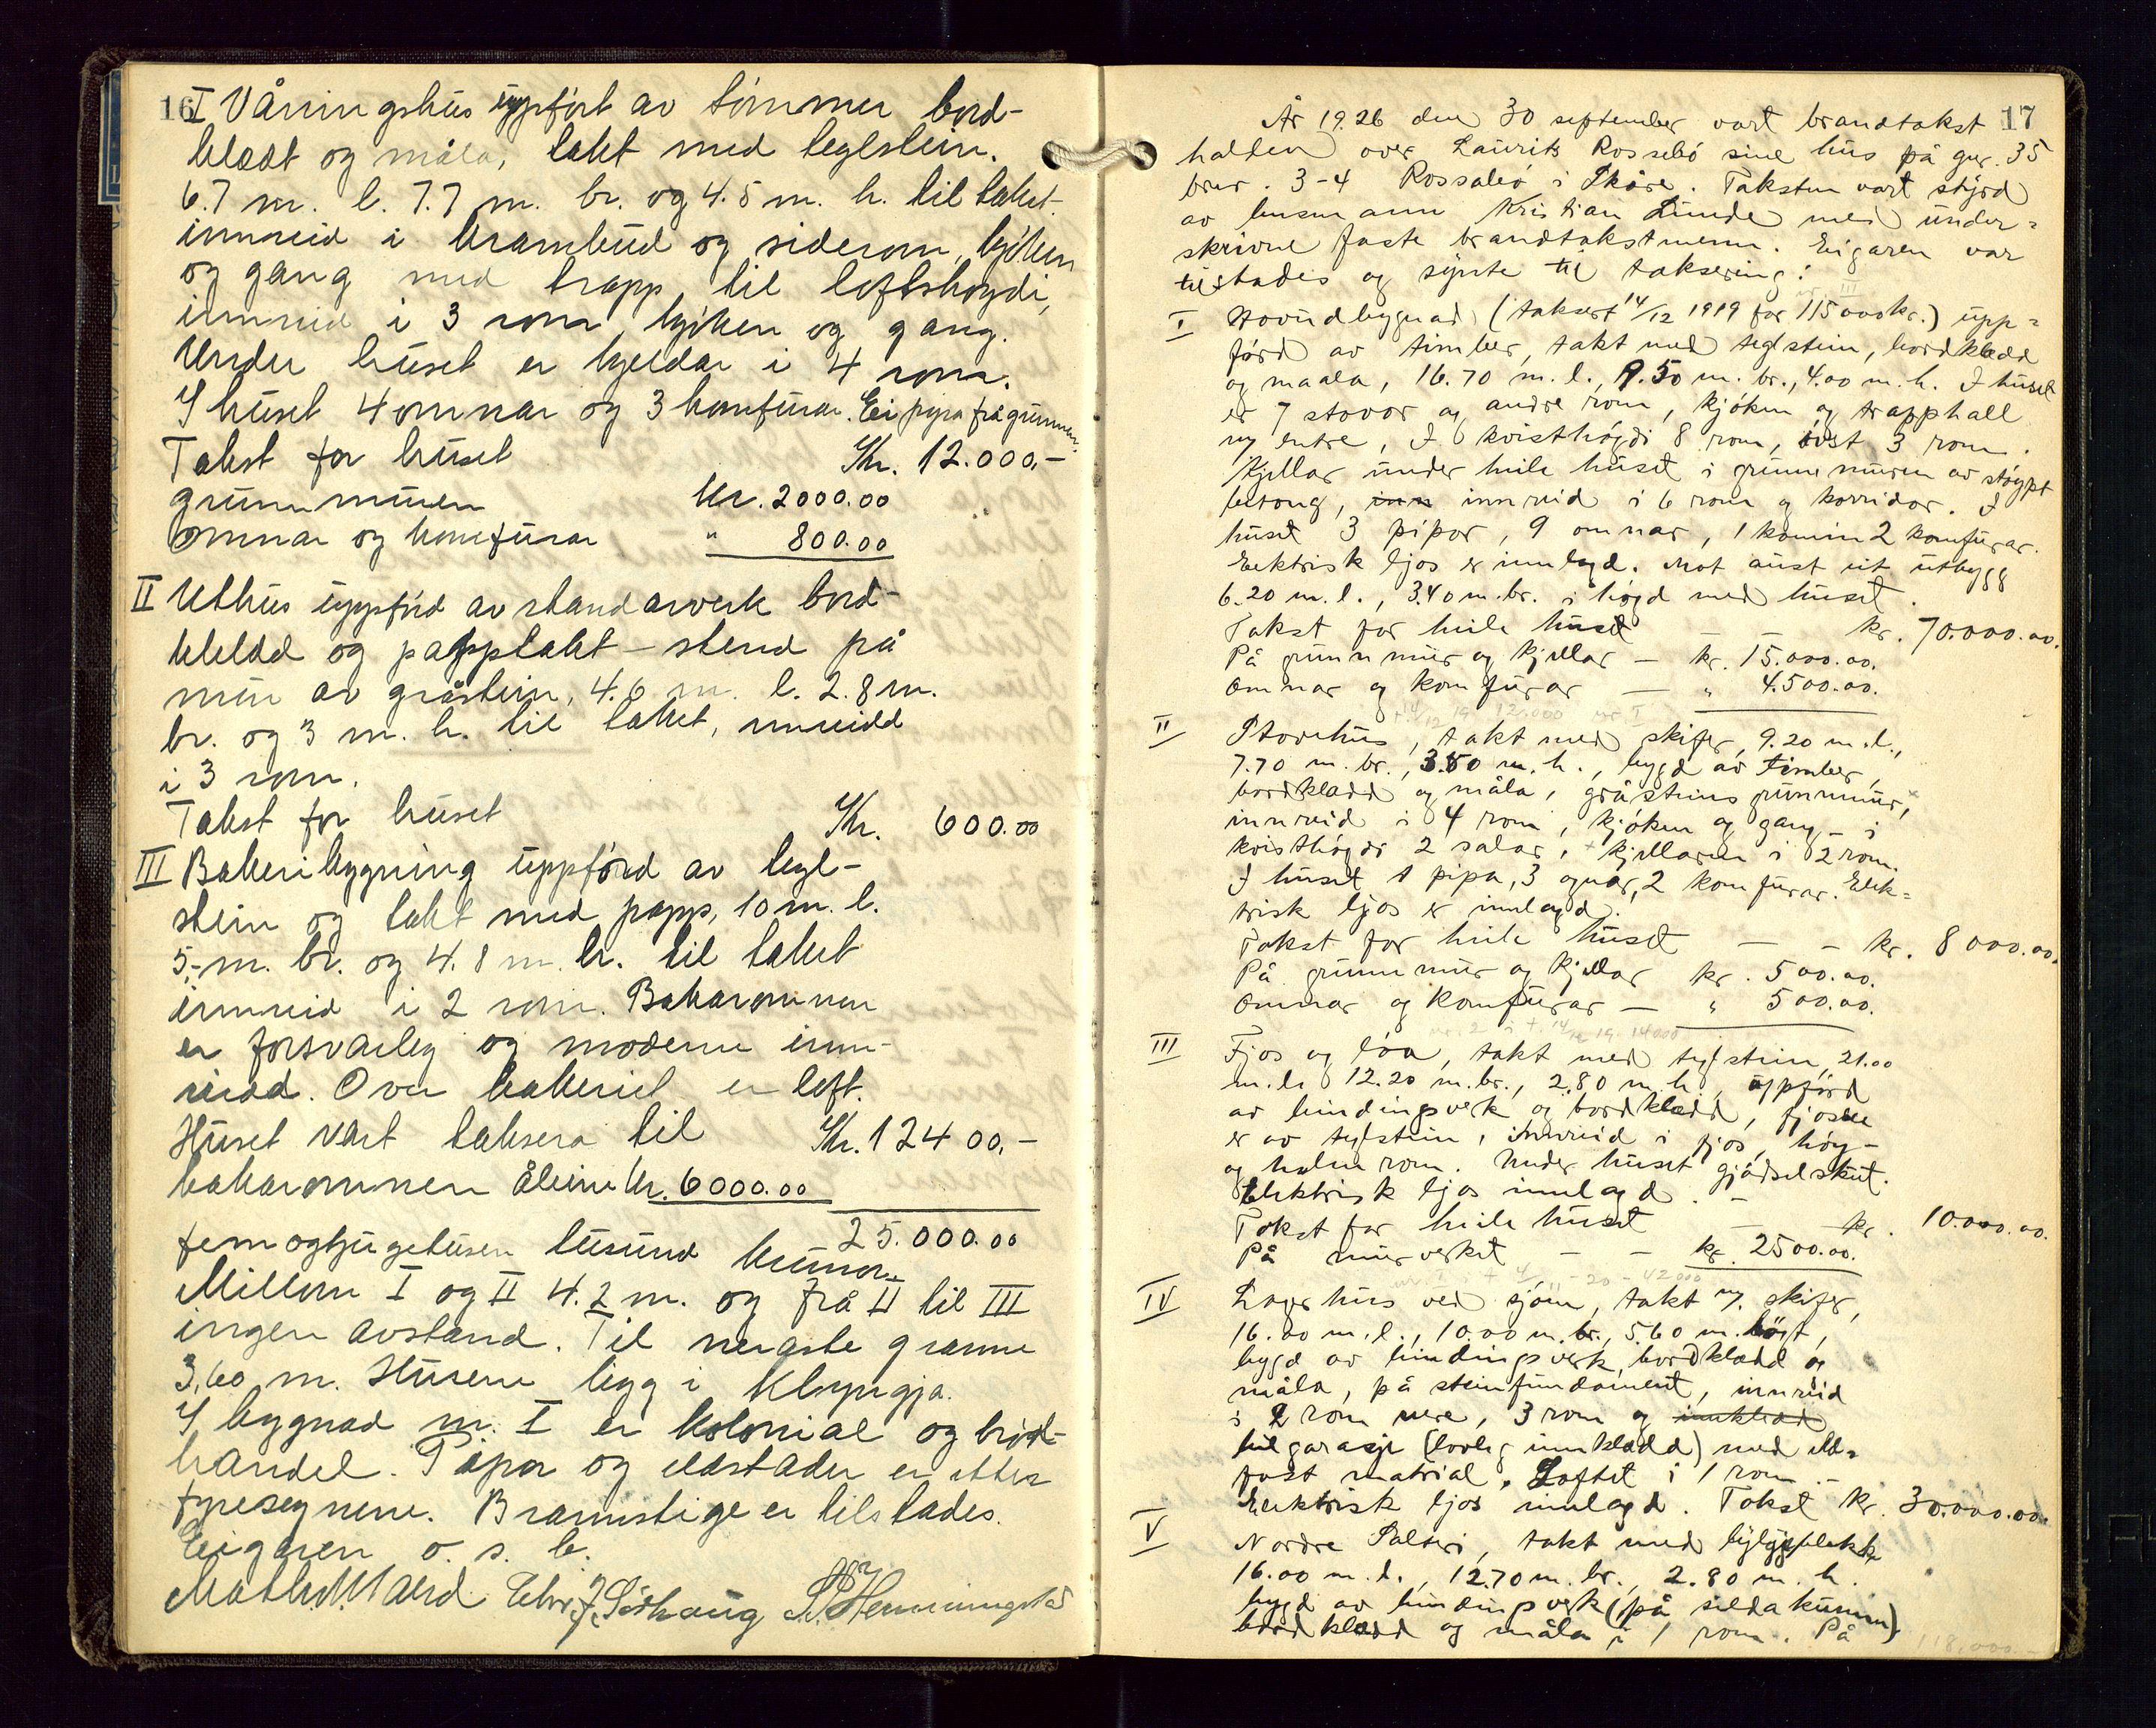 16
I Våningshus uppført av tømmer bord-
klædt og måla, takt med teglstein.
6.7 m. l. 7.7 m. br. og 4.5 m. h. til taket.
innreid i krambud og siderom, kjøken
og gang med trapp til loftshøgdi,
innreid i 3 rom, kjøken og gang.
Under huset er kjeldar i 4 rom.
I huset 4 omnar og 3 komfurar. Ei pipa frå grunnen.
Takst for huset Kr. 12.000,-
grunnmuren kr. 2000.00
Omnar og komfurar " 800.00
II Uthus uppførd av standarverk bord-
kledd og papptakt - stend på
mur av gråstein, 4.6 m. l. 2.8 m.
br. og 3 m. h. til taket, innreidd
i 3 rom.
Takst for huset Kr. 600.00
III Bakeribygning uppførd av tegl-
stein og takt med papp, 10 m. l.
5,- m. br. og 4.8 m. h. til taket
innreid i 2 rom. Bakaromnen
er forsvarleg og moderne inn-
reidd. Over bakeriet er loft.
Huset vart taksera til Kr. 12400,-
bakaromnen åleine kr. 6000.00
25.000.00
femogtjugetusen tusund kronor
Millom I og II 4.2 m. og frå II til III
ingen avstand. Til neraste granne
3,60 m. Husene ligg i klyngja.
I bygnad nr. I er kolonial og brød-
handel. Pipor og eldstader er etter
fyresegnene. Brannstige er tilstades.
Eigaren o. s. b.
Math. M.Værd Chr. J. Sørhaug S. Henningstad
17
År 1926 den 30 september vart brandtakst
halden over Laurits Rossebø sine hus på gnr. 35
bnr. 3-4 Rossabø i Skåre. Taksten vart styrd
av lensmann Kristian Lunde med under=
skrivne faste brandtakstmenn. Eigaren var
tilstades og synte til taksering:
I Hovudbygnad (taksert 14/12 1919 for 115000 kr.) upp=
førd av timber, takt med teglstein, bordklædd
og maala, 16.70 m. l., 9.50 m. br., 4.00 m. h. I huset
er 7 stovor og andre rom, kjøken og trapphall
og entre, I kvisthøgdi 8 rom, øvst 3 rom.
Kjellar under heile huset i grunnmuren av støypt
betong, innreid i 6 rom og korridor. I
huset 3 pipor, 9 omnar, 1 komin 2 komfurar.
Elektrisk ljos er innlagd. Mot aust eit utbygg
6.20 m. l., 3.40 m. br. i høgd med huset.
Takst for heile huset — — kr. 70.000.00.
På grunnmur og kjellar — kr. 15.000.00.
Omnar og komfurar — " 4.500.00.
II Stovehus, takt med skifer, 9.20 m. l.,
7.70 m. br., 3.50 m. h., bygd av timber,
bordkladd og måla, gråsteins grunnmur,
innreid i 4 rom, kjøken og gang - i
kvisthøgdi 2 salar, kjellaren i 2 rom.
I huset 1 pipa, 3 ognar, 2 komfurar. Elek=
trisk ljos er innlagd.
Takst for heile huset — - kr. 8000.00.
På grunnmur og kjellar kr. 500.00.
Omnar og komfurar — " 500.00.
III Fjos og løa, takt med teglstein, 21.00
m. l. 12.20 m. br., 2.80 m. h., uppførd
av bindingsverk og bordklædd, fjosne
er av teglstein, innreid i fjos, høy-
og halmrom. Under huset gjødselskut.
Elektrisk ljos innlagd. -
Takst for heile huset — kr. 10.000.00.
På murverket — - kr. 2500.00.
IV Lagerhus ved sjøen, takt m. skifer,
16.00 m. l., 10.00 m. br., 5.60 m. høgt,
bygd av bindingsverk, bordklædd og
måla, på steinfundament, innreid
i 2 rom nere, 3 rom og innklædd
bilgarasje (lovleg innklædd) med eld=
fast matrial. Loftet i 1 rom -
Elektrisk ljos innlagd. Takst kr. 30.000.00.
V Nordre Salteri, takt med bylgjeblekk
16.00 m. l., 12.70 m. br., 2.80 m. h.
bygd av bindingsverk (på sildakummen)
bordklædd og måla i 1 rom. På
118.000.-